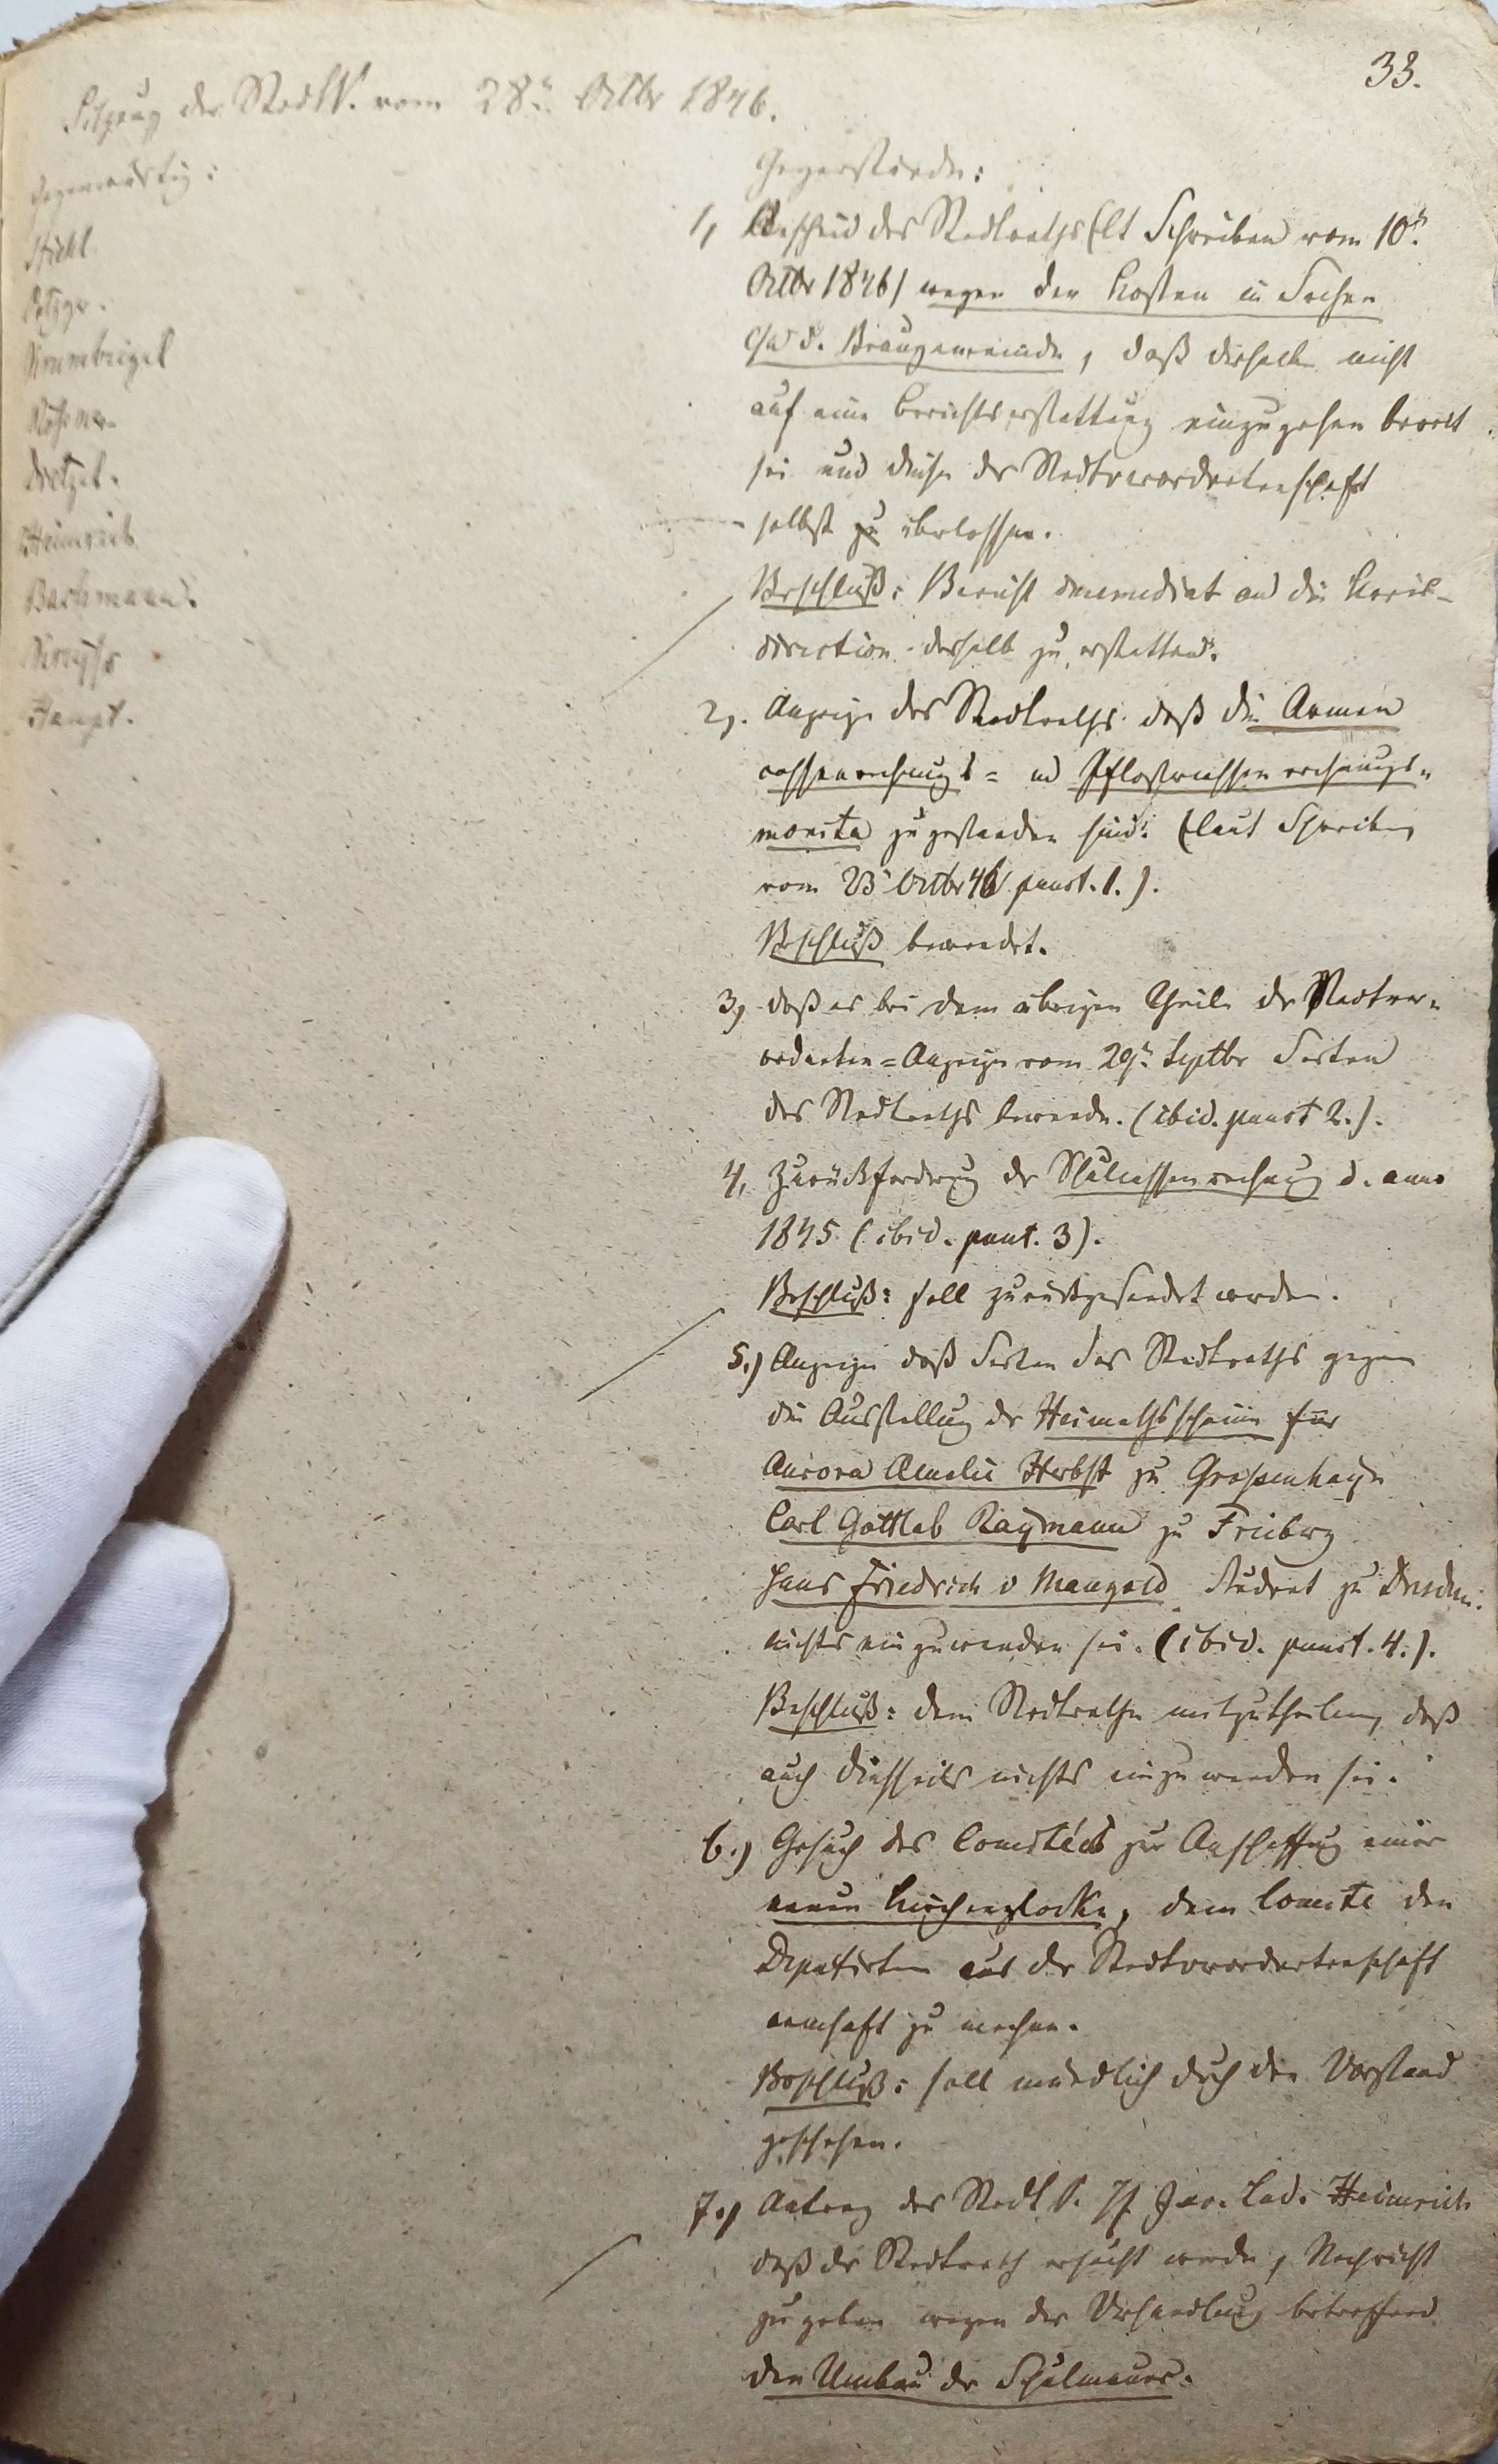 33.
Sitzung der StadtV. vom 28n. Octbr 1846.
Gegenwärtig:
Krumbiegel
Heinrich
Bachmann.
Haupt.
Gegenstände:
1, Bescheid des Stadtraths (lt Schreiben vom 10n.
Octbr 1846) wegen der Kosten in Sachen
c/a d. Braugemeinde, daß derselbe nicht
auf eine Berichtserstattung einzugehen bereit
sei und diese der Stadtverordnetenschaft
selbst zu überlassen.
Beschluß: Bericht immediat an die Kreis-
direction deshalb zu erstatten.
2). Anzeige des Stadtraths daß die Armen
cassenrechnungs= und cassenrechnungs=
monita zugestanden sind. (laut Schreiben
vom 23 Octbr 46 punct. 1.).
Beschluß bewendet.
3) daß es bei dem übrigen Theile der Stadtver=
ordneten=Anzeige vom 29n. Septbr Seiten
des Stadtraths bewende. (ibid. punct 2.).
4, Zurückforderung der Schulcassenrechnung d. anno
1845 (ibid. punct. 3).
Beschluß: soll zurückgesendet werden.
5.) Anzeige daß Seiten des Stadtraths gegen
die Ausstellung der Heimathsscheine für
Aurora Amalie Herbst zu Großenhayn
Carl Gottlob Raymann zu Freiberg
Hans Friedrich v Mangold Student zu Dresden.
nichts einzuwenden sei. (ibid. punct. 4.).
Beschluß: dem Stadtrathe mitzutheilen, daß
auch diesseits nichts einzuwenden sei.
6.) Gesuch des Comitées zur Anschaffung einer
neuen Kirchenglocke, dem Comité den
Deputirten aus der Stadtverordnetenschaft
namhaft zu machen.
Beschluß: soll mündlich durch den Vorstand
geschehen.
7.) Antrag des Stadt Heinrich
daß der Stadtrath ersucht werde, Nachricht
zu geben wegen der Verhandlung betreffend
den Umbau der Schulmauer.